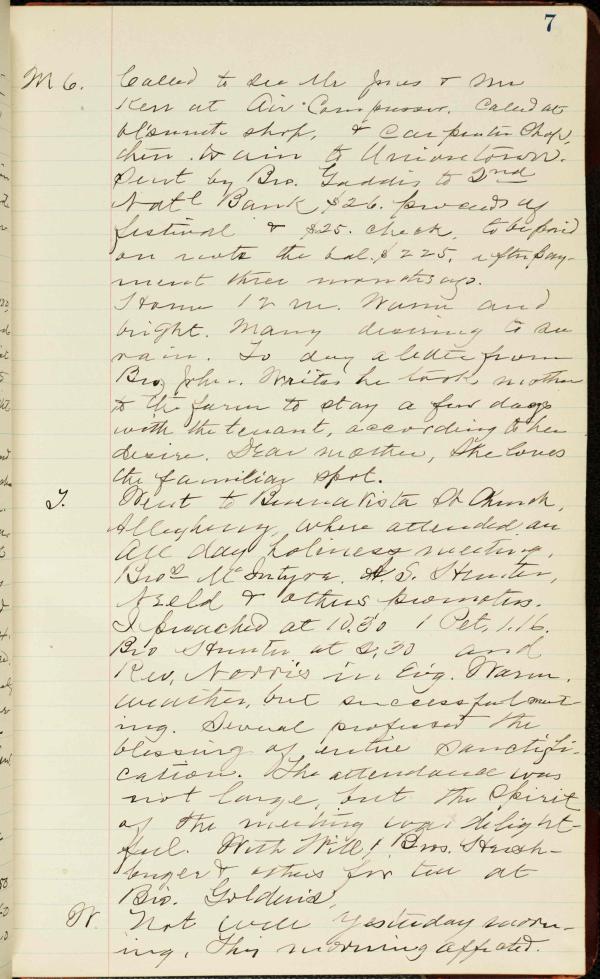 7
M 6. Called to see Mr Jones & Mr
Kerr at Air Compressor. Called at
shop, & Carpenter Shop,
then train to Uniontown.
Sent by Bro. Gaddis to 2nd
Nat'l Bank $26. proceeds of
festival & $25. check, to be paid
on note the bal. $225, after pay-
ment three months ago.
Home 12 m. Warm and
bright. Many desiring to see
rain. To day a letter from
Bro, John. Writes he took mother
to the farm to stay a few days
with the tenant, according to her
desire. Dear mother, she loves
the familiar spot.
T. Went to Buena Vista St Church,
Allegheny, where attended an
all day holiness meeting.
Bros McIntyre, A. S. Hunter,
Neeld & others promoters.
I preached at 10.30 1 Pet, 1.16.
Bro Hunter at 2,30 and
Rev, Norris in Evg. Warm,
weather, but successful meet-
ing. Several professed the
blessing of entire sanctifi-
cation. The attendance was
not large, but the Spirit
of the meeting was delight-
ful. With Will, Bros. Hersh-
berger & others for tea at
Bro. Golden's,
W. Not well yesterday morn-
ing, This morning affected.